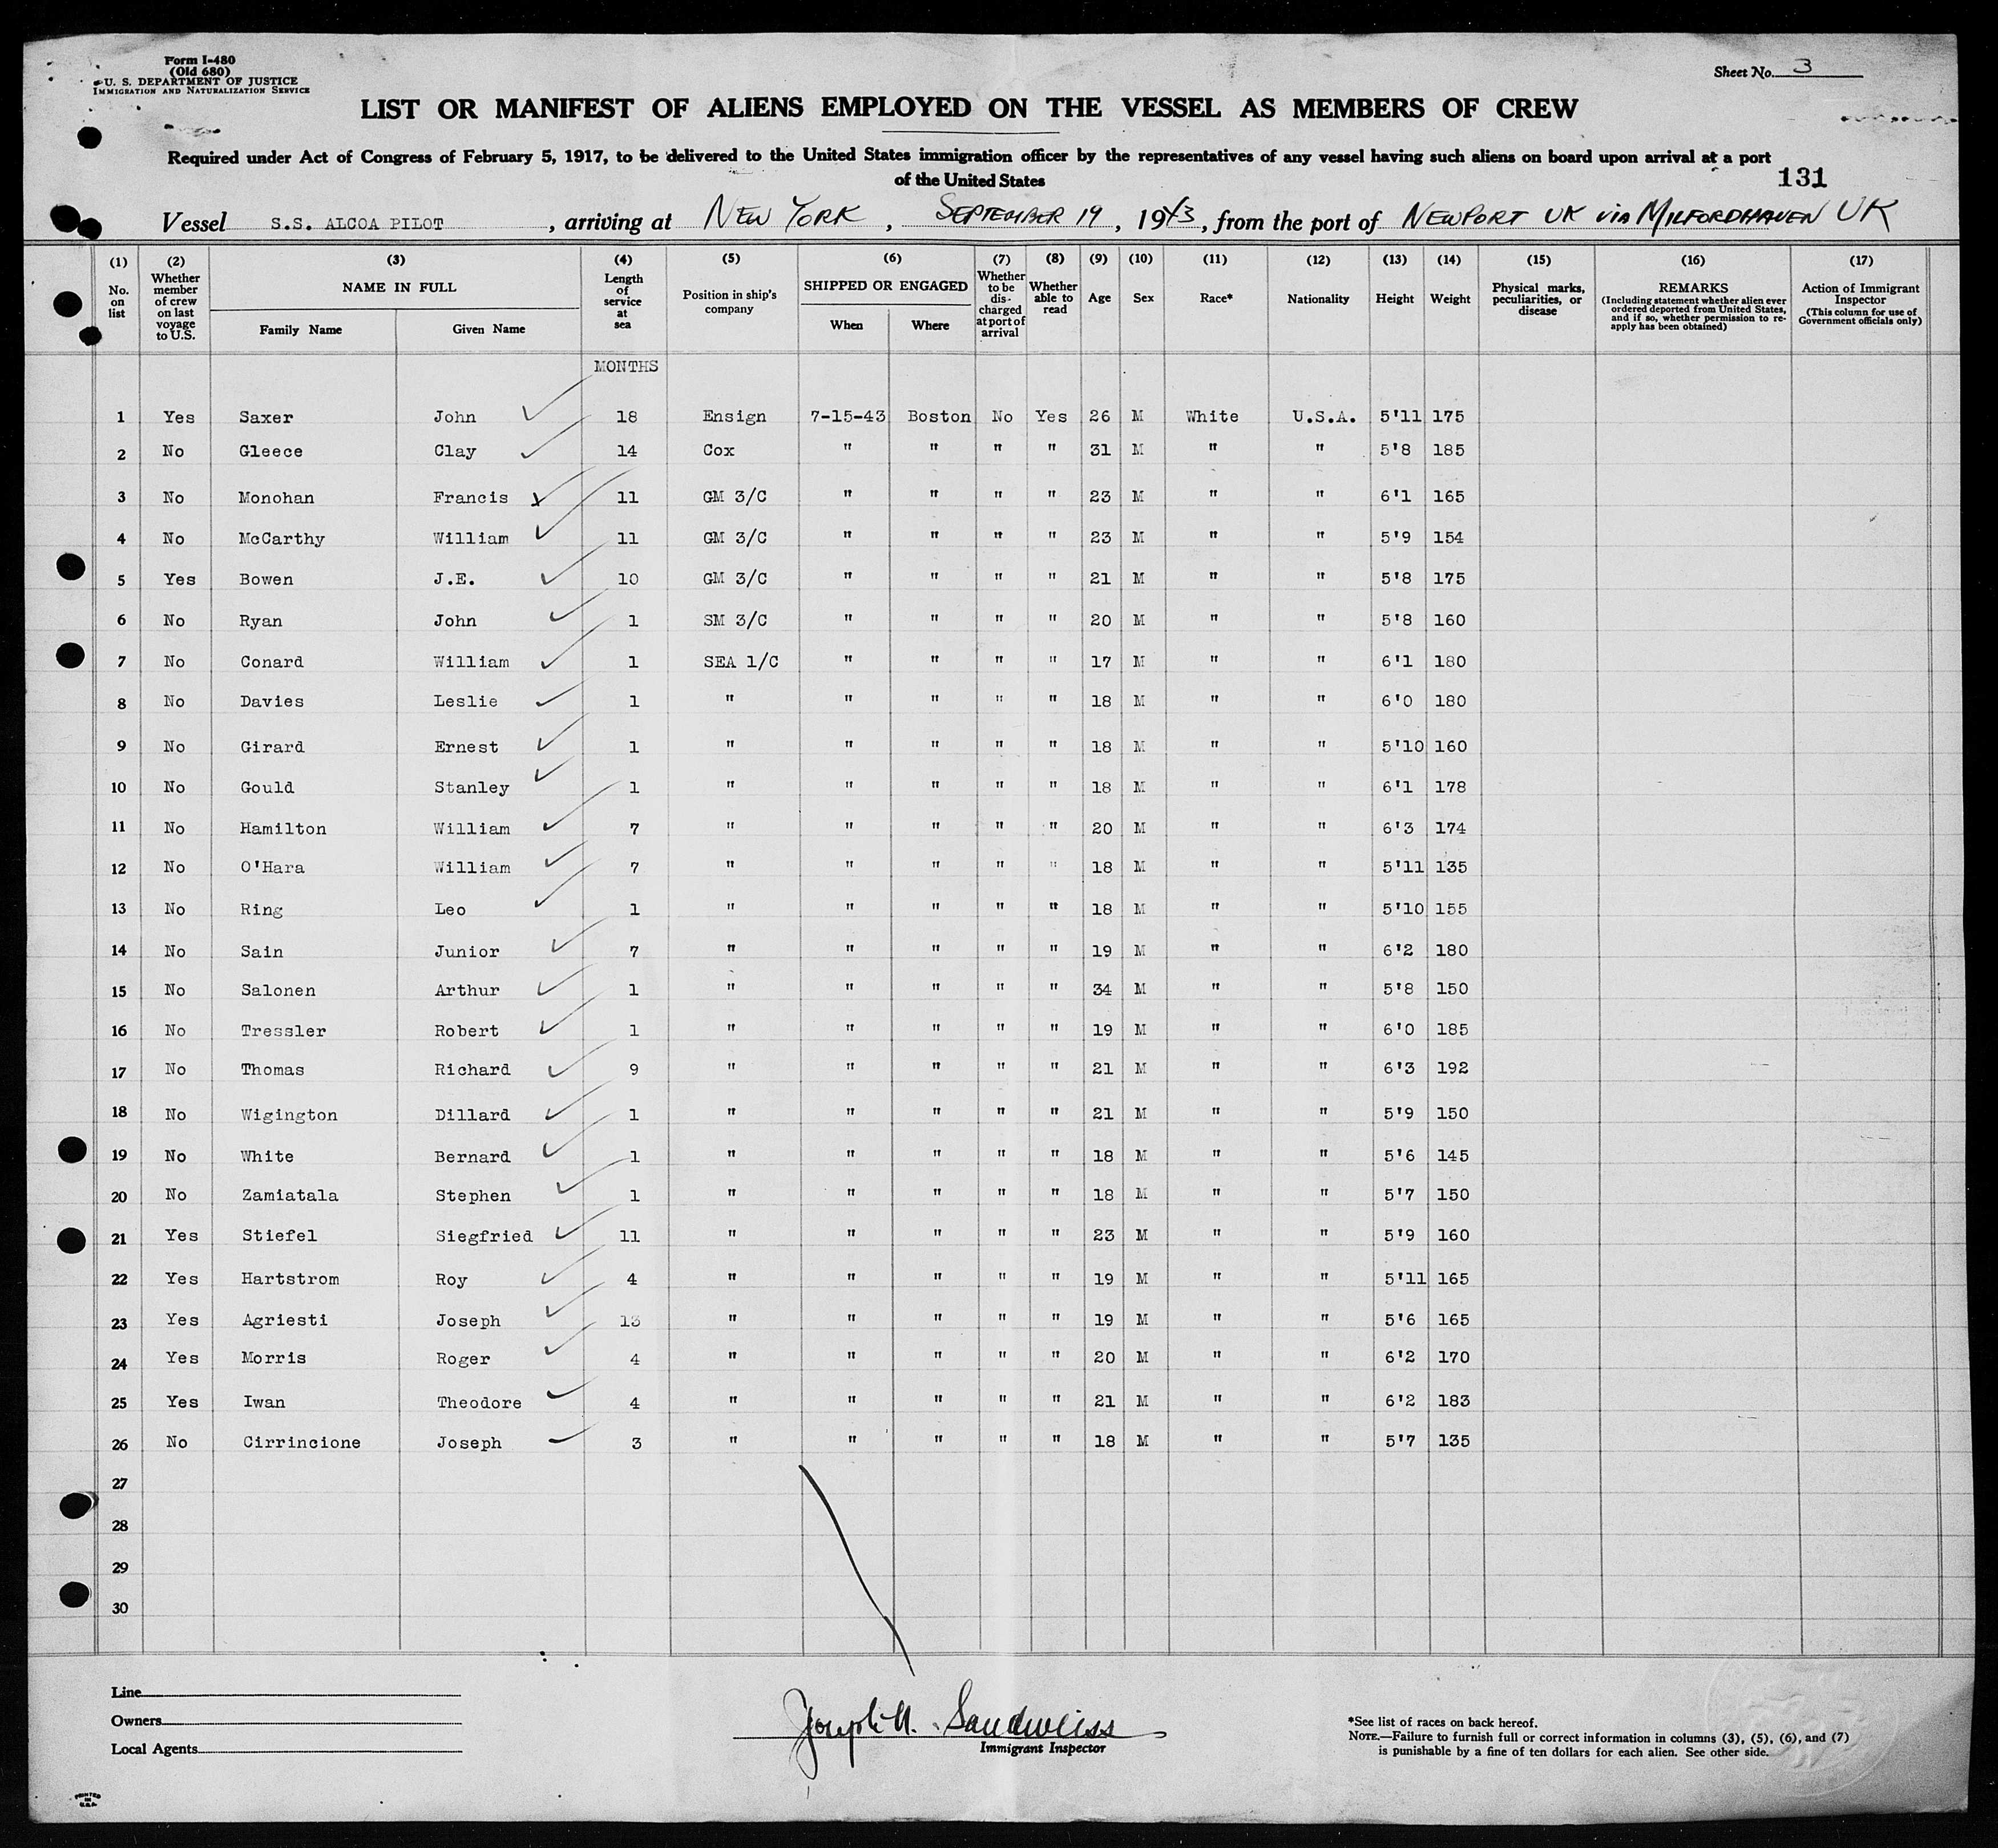 Form I-480
(Old 680)
U. S. DEPARTMENT OF JUSTICE
IMMIGRATION AND NATURALIZATION SERVICE
Sheet No. 3
LIST OR MANIFEST OF ALIENS EMPLOYED ON THE VESSEL AS MEMBERS OF CREW
Required under Act of Congress of February 5, 1917, to be delivered to the United States immigration officer by the representatives of any vessel having such aliens on board upon arrival at a port
of the United States
131
Vessel S.S. ALCOA PILOT, arriving at NEW YORK, SEPTEMBER 19, 1943, from the port of NEWPORT UK VIA MILFORDHAVEN UK
(1) No. on list
(2) Whether member of crew on last voyage to U.S.
(3) NAME IN FULL Family Name Given Name
(4) Length of service at sea
(5) Position in ship's company
(6) SHIPPED OR ENGAGED When Where
(7) Whether to be discharged at port of arrival
(8) Whether able to read
(9) Age
(10) Sex
(11) Race*
(12) Nationality
(13) Height
(14) Weight
(15) Physical marks, peculiarities, or disease
(16) REMARKS (Including statement whether alien ever ordered deported from United States, and if so, whether permission to re-apply has been obtained)
(17) Action of Immigrant Inspector (This column for use of Government officials only)
MONTHS
1 Yes Saxer John 18 Ensign 7-15-43 Boston No Yes 26 M White U.S.A. 5'11 175
2 No Gleece Clay 14 Cox " " " " 31 M " " 5'8 185
3 No Monohan Francis 11 GM 3/C " " " " 23 M " " 6'1 165
4 No McCarthy William 11 GM 3/C " " " " 23 M " " 5'9 154
5 Yes Bowen J.E. 10 GM 3/C " " " " 21 M " " 5'8 175
6 No Ryan John 1 SM 3/C " " " " 20 M " " 5'8 160
7 No Conard William 1 SEA 1/C " " " " 17 M " " 6'1 180
8 No Davies Leslie 1 " " " " " 18 M " " 6'0 180
9 No Girard Ernest 1 " " " " " 18 M " " 5'10 160
10 No Gould Stanley 1 " " " " " 18 M " " 6'1 178
11 No Hamilton William 7 " " " " " 20 M " " 6'3 174
12 No O'Hara William 7 " " " " " 18 M " " 5'11 135
13 No Ring Leo 1 " " " " " 18 M " " 5'10 155
14 No Sain Junior 7 " " " " " 19 M " " 6'2 180
15 No Salonen Arthur 1 " " " " " 34 M " " 5'8 150
16 No Tressler Robert 1 " " " " " 19 M " " 6'0 185
17 No Thomas Richard 9 " " " " " 21 M " " 6'3 192
18 No Wigington Dillard 1 " " " " " 21 M " " 5'9 150
19 No White Bernard 1 " " " " " 18 M " " 5'6 145
20 No Zamiatala Stephen 1 " " " " " 18 M " " 5'7 150
21 Yes Stiefel Siegfried 11 " " " " " 23 M " " 5'9 160
22 Yes Hartstrom Roy 4 " " " " " 19 M " " 5'11 165
23 Yes Agriesti Joseph 13 " " " " " 19 M " " 5'6 165
24 Yes Morris Roger 4 " " " " " 20 M " " 6'2 170
25 Yes Iwan Theodore 4 " " " " " 21 M " " 6'2 183
26 No Cirrincione Joseph 3 " " " " " 18 M " " 5'7 135
27
28
29
30
Line
Owners
Local Agents
Joseph Sandweiss
Immigrant Inspector
*See list of races on back hereof.
NOTE.—Failure to furnish full or correct information in columns (3), (5), (6), and (7)
is punishable by a fine of ten dollars for each alien. See other side.
PRINTED
IN
U.S.A.